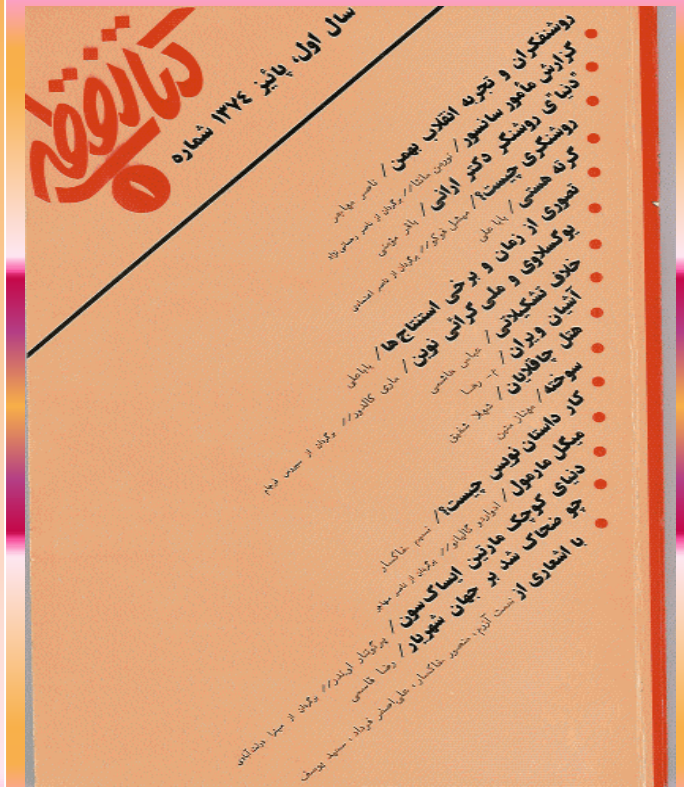 سال اول، پائیز ۱۳۷٤ شماره
روشنفکران و تجربه انقلاب بهمن / ناصر مهاجر
گزارش مأمور سانسور / نورمن مانئا // برگردان از ناصر رحمانی‌نژاد
"دنیا"ی روشنگر دکتر ارانی / باقر مومنی
روشنگری چیست؟ / میشل فوکو // برگردان از ناصر اعتمادی
گرته هستی / بابا علی
تصوری از زمان و برخی استنتاج‌ها / باباعلی
یوگسلاوی و ملی گرائی نوین / ماری کالدور // برگردان از سیروس
خلاف تشکیلاتی / عباس هاشمی
آتئیان ویران / م- رضا
هتل چاقلایان / شهلا شفیق
سوخته / مهناز متین
کار داستان نویس چیست؟ / نسیم خاکسار
میگل مارمول / ادواردو گالیانو // برگردان از ناصر مهاجر
دنیای کوچک مارتین ایساک سون / برگردان از میترا دولت‌آبادی
چو ضحاک شد بر جهان شهریار / رضا قاسمی
با اشعاری از نعمت آزرم، منصور خاکسار، علی‌اصغر فرداد، سعید یوسف